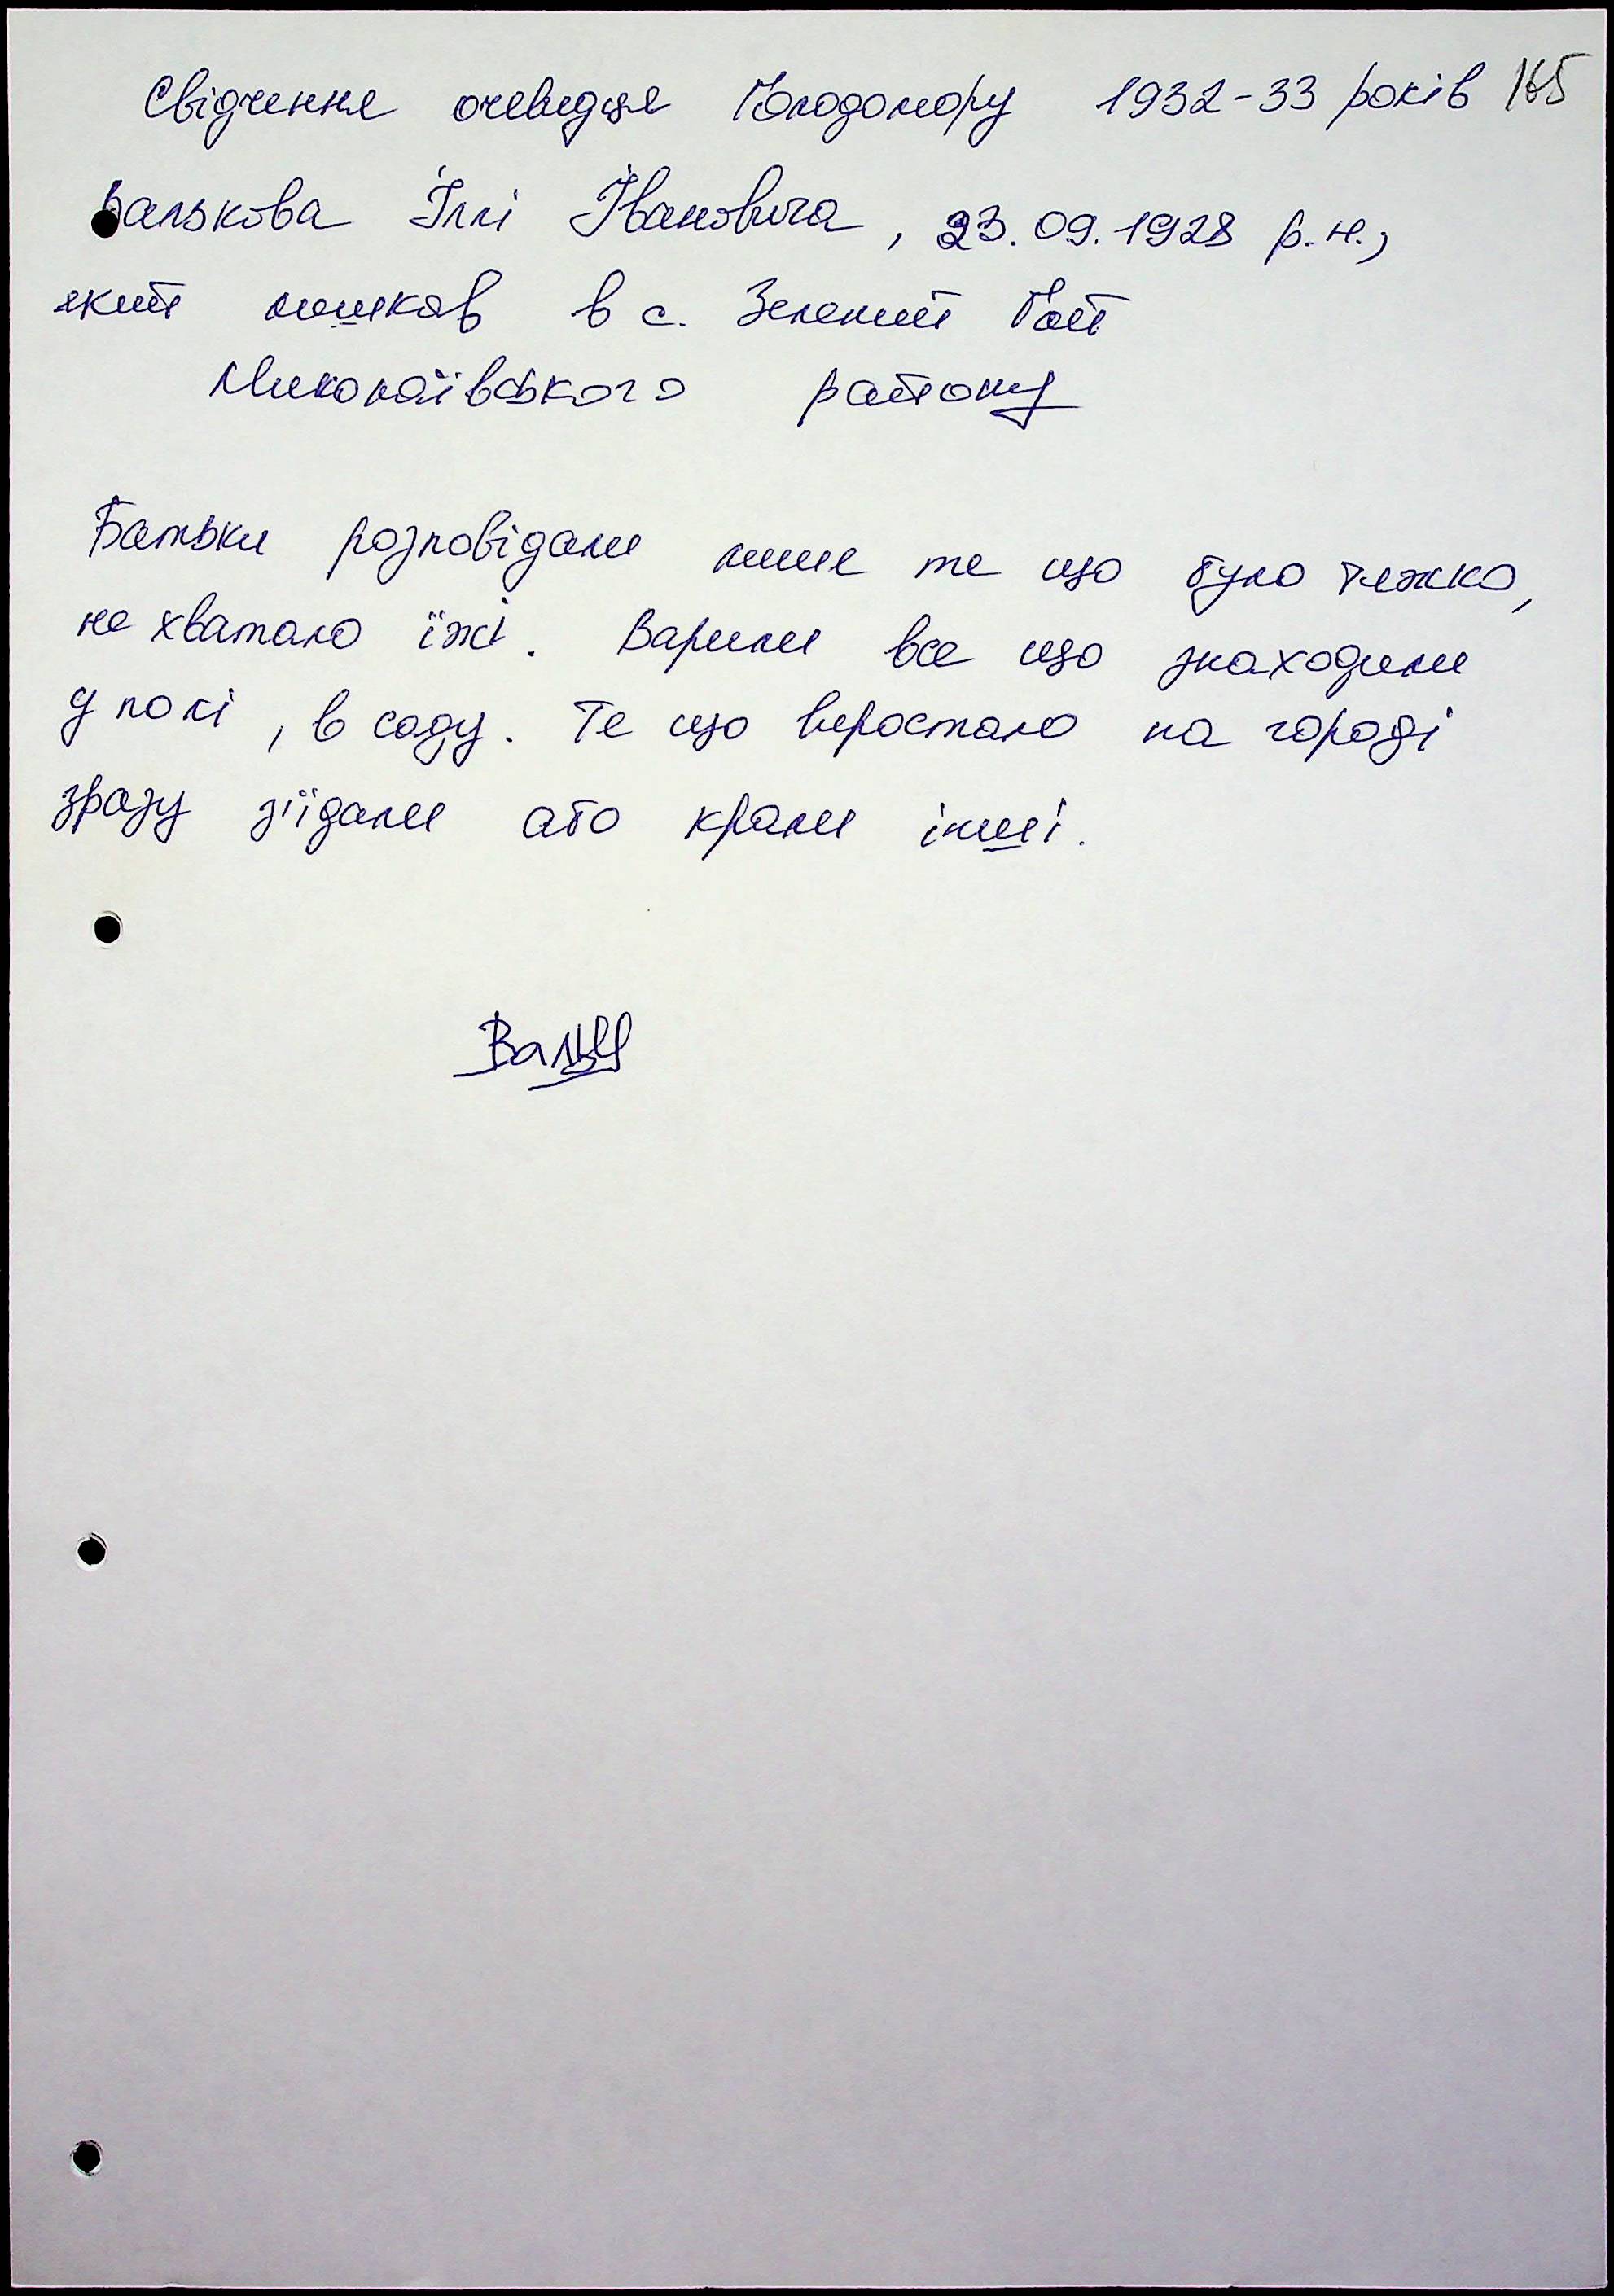 Свідчення очевидця Голодомору 1932-33 років 165
Валькова Іллі Івановича, 23.09.1928 р.н.,
який мешкав в с. Зелений Гай
Миколаївського району
Батьки розповідали лише те що було тяжко,
не хватало їжі. Варили все що знаходили
у полі, в саду. Те що виростало на городі
зразу з'їдали або крали інші.